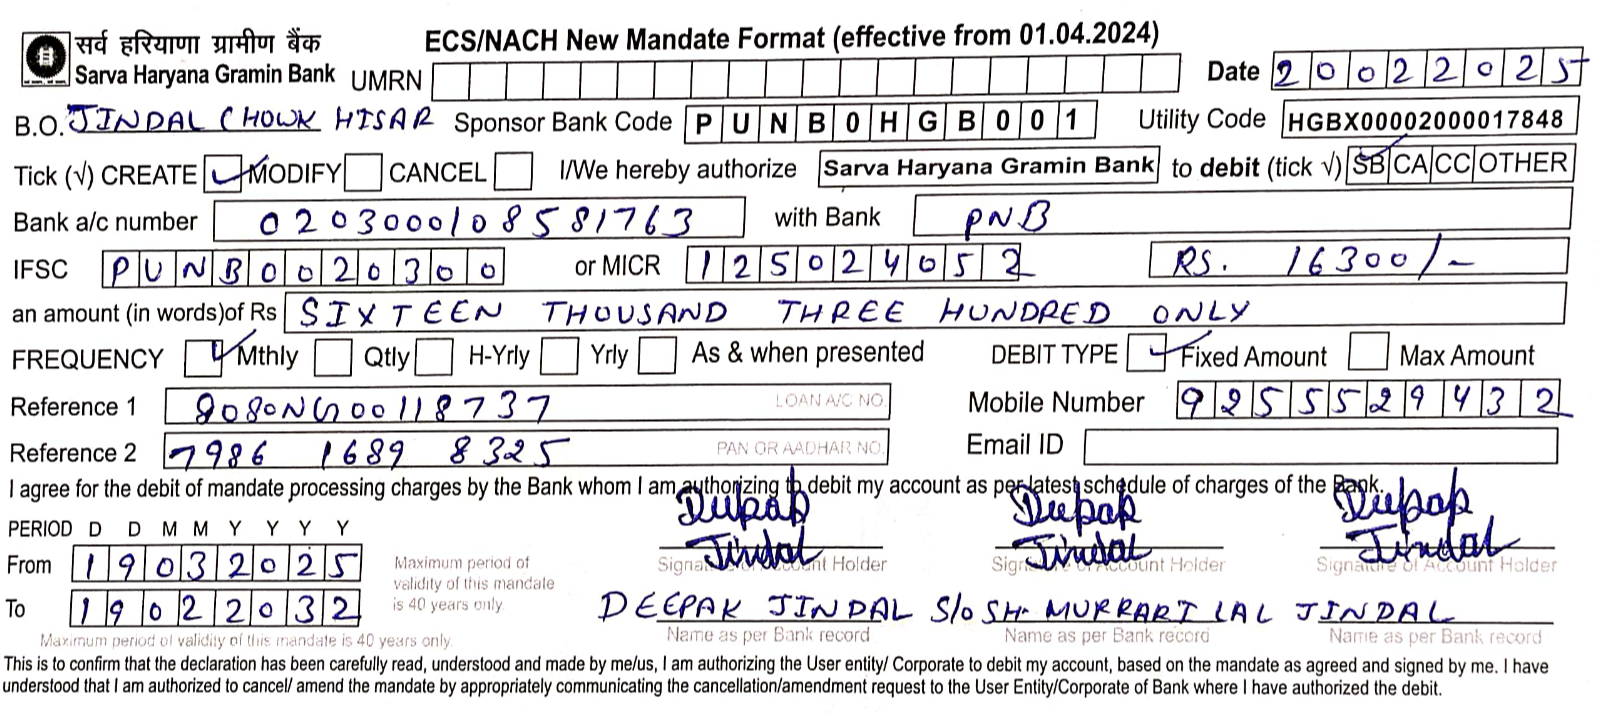 सर्व हरियाणा ग्रामीण बैंक
Sarva Haryana Gramin Bank
ECS/NACH New Mandate Format (effective from 01.04.2024)
UMRN Date 20022025
B.O. JINDAL CHOWK HISAR Sponsor Bank Code PUNB0HGB001 Utility Code HGBX00002000017848
Tick (√) CREATE ✓ MODIFY CANCEL I/We hereby authorize Sarva Haryana Gramin Bank to debit (tick √) SB ✓ CA CC OTHER
Bank a/c number 0203000108581763 with Bank PNB
IFSC PUNB0020300 or MICR 125024052 RS. 16300/-
an amount (in words)of Rs SIXTEEN THOUSAND THREE HUNDRED ONLY
FREQUENCY ✓ Mthly Qtly H-Yrly Yrly As & when presented DEBIT TYPE ✓ Fixed Amount Max Amount
Reference 1 8080NG00118737 LOAN A/C NO. Mobile Number 9255529432
Reference 2 7986 1689 8325 PAN OR AADHAR NO. Email ID
I agree for the debit of mandate processing charges by the Bank whom I am authorizing to debit my account as per latest schedule of charges of the Bank.
PERIOD D D M M Y Y Y Y
From 19032025
To 19022032
Maximum period of validity of this mandate is 40 years only.
Maximum period of
validity of this mandate
is 40 years only.
Deepak Jindal Deepak Jindal Deepak Jindal
Signature of Account Holder Signature of Account Holder Signature of Account Holder
DEEPAK JINDAL S/O SH. MURRARI LAL JINDAL
Name as per Bank record Name as per Bank record Name as per Bank record
This is to confirm that the declaration has been carefully read, understood and made by me/us, I am authorizing the User entity/ Corporate to debit my account, based on the mandate as agreed and signed by me. I have
understood that I am authorized to cancel/ amend the mandate by appropriately communicating the cancellation/amendment request to the User Entity/Corporate of Bank where I have authorized the debit.